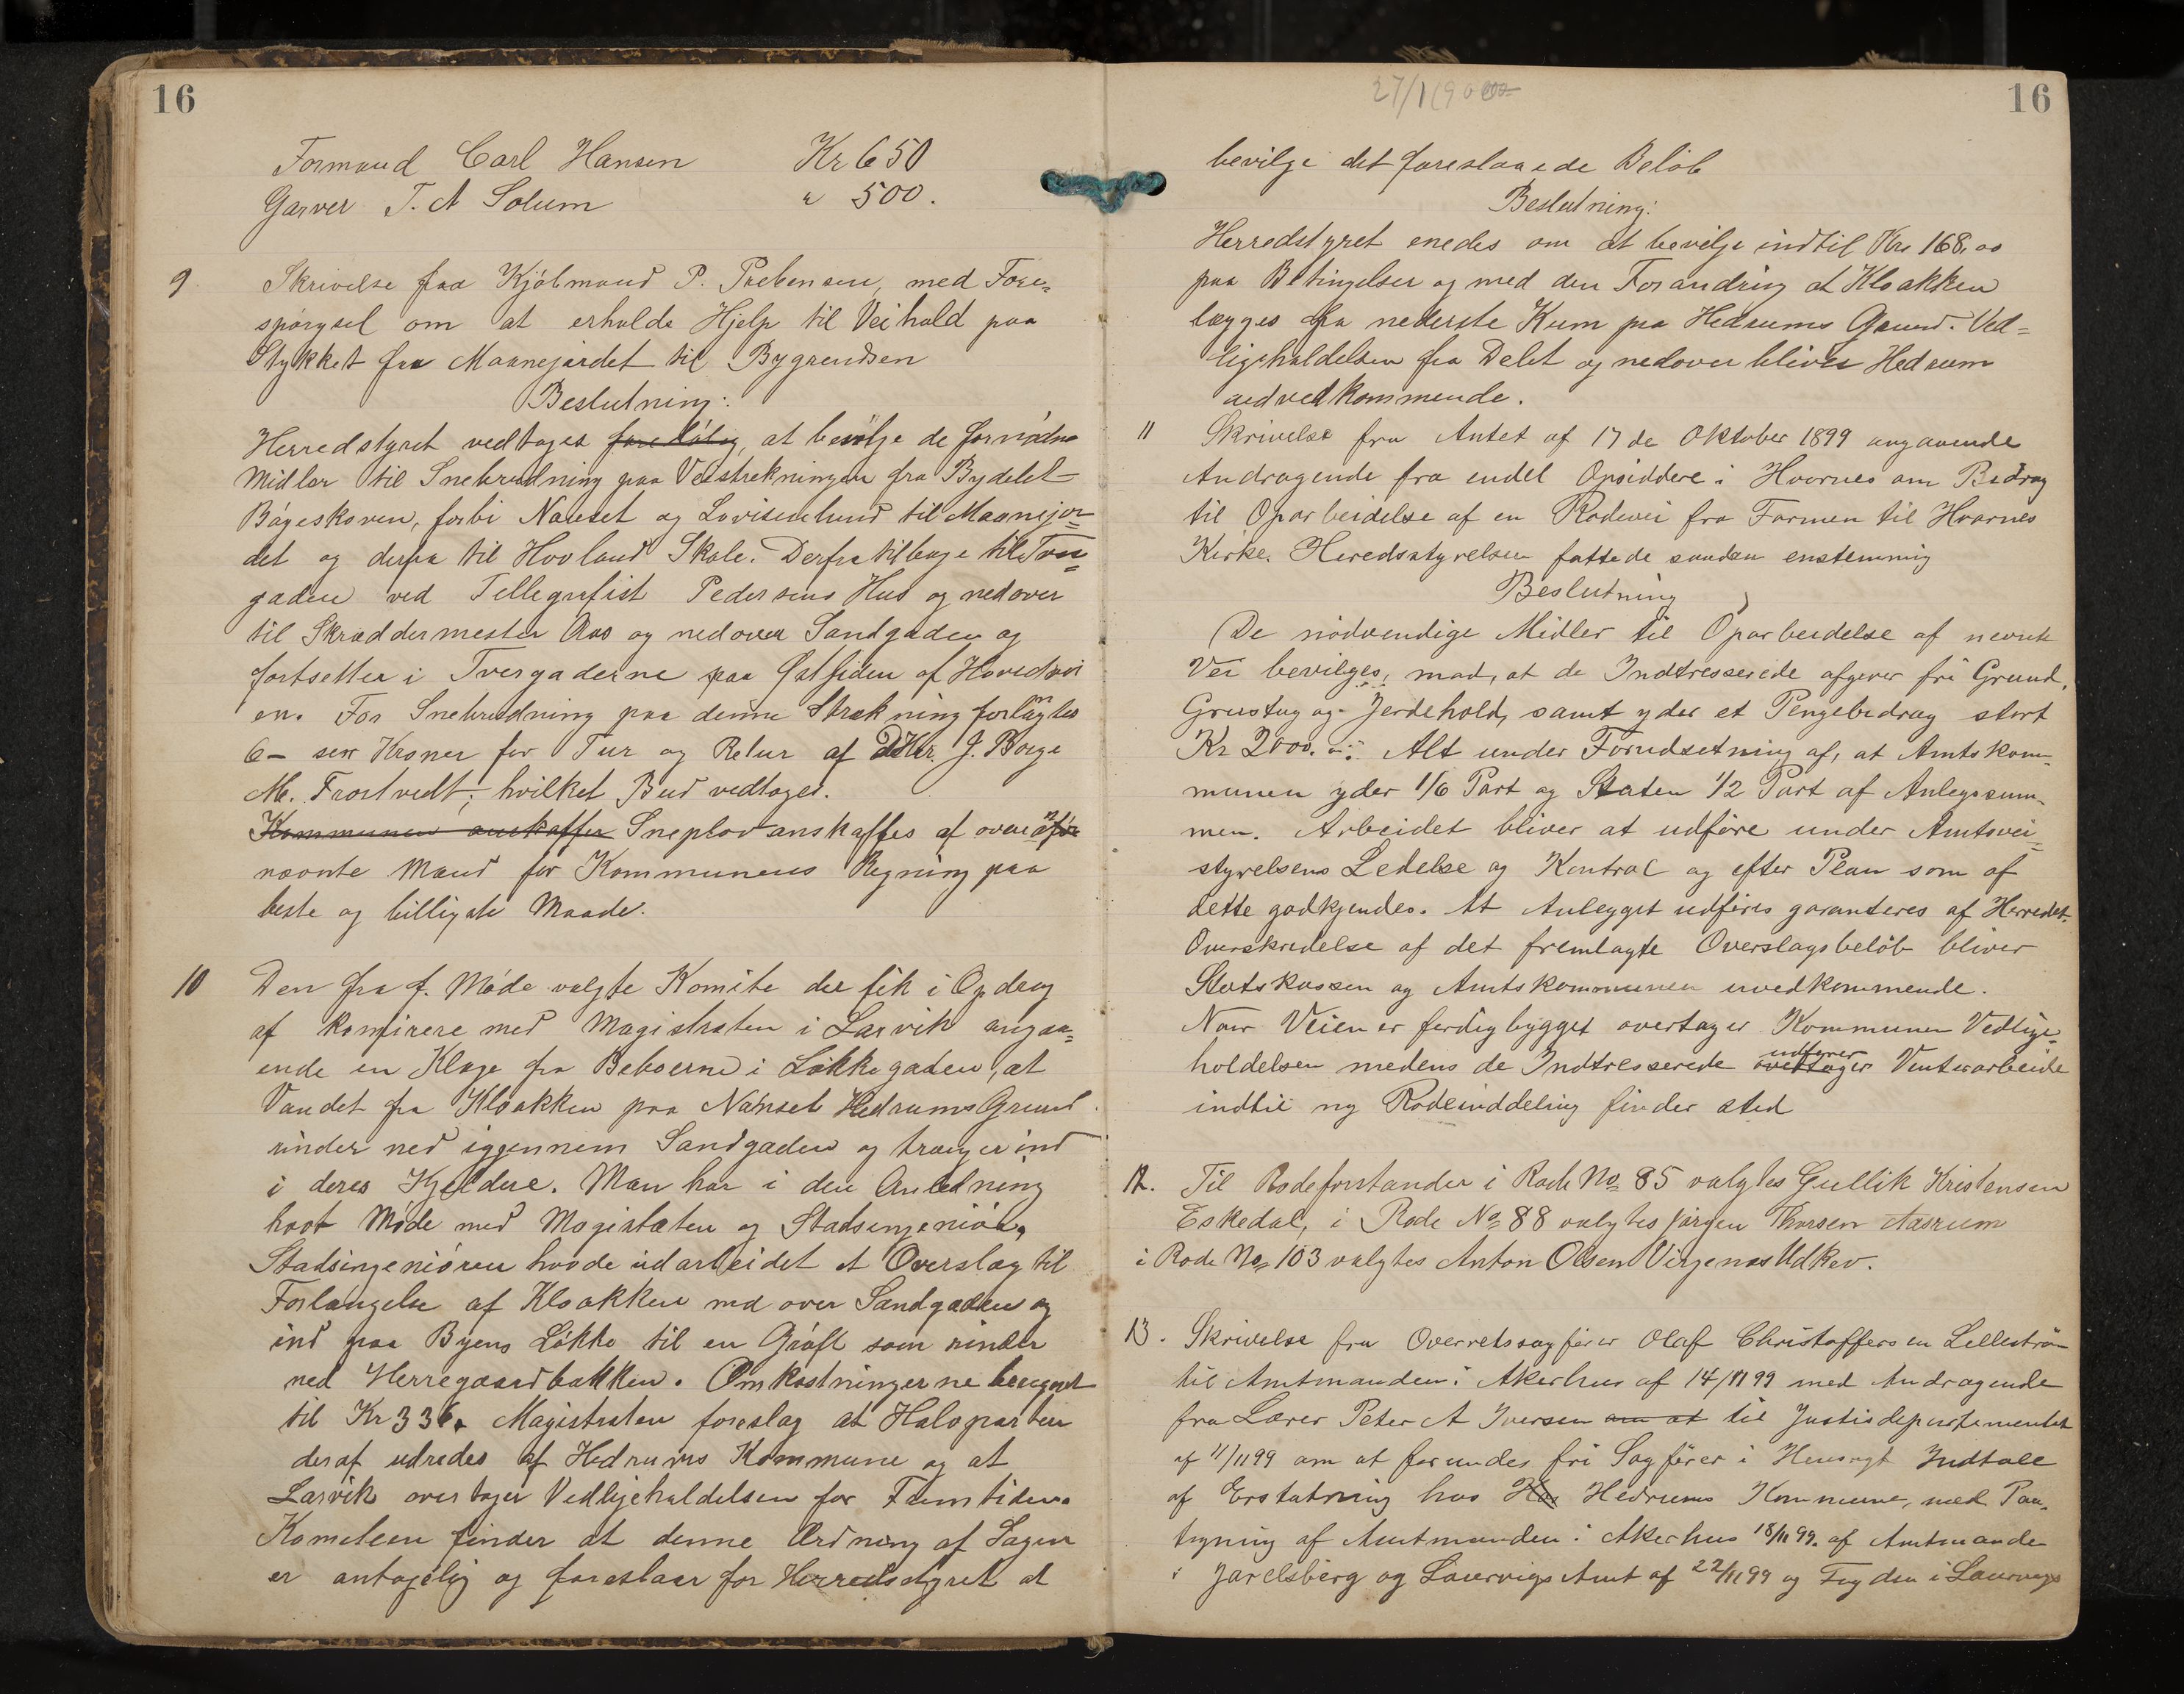 16
Formand Carl Hansen Kr 650
Garver T. A Solum " 500.
9. Skrivelse fra Kjøbmand P. Prebensen, med Fore=
spørgsel om at erholde Hjelp til Veihold paa
Stykket fra Maanejordet til Bygrendsen
Beslutning:
Herredstyret vedtoges foreløbig, at bevilge de fornødne
Midler til Snebrødning paa Veistrekningen fra Bydelet
Bøgeskoven, forbi Nanset og Lovisenlund til Maanejor=
det og derfra til Hovland Skole. Derfra tilbage til Tver=
gaden ved Tellegrafist Pedersens Hus og nedover
til Skræddermester Aas og nedover Sandgaden og
fortsetter i Tvergaderne paa Østsiden af Hovedvei
en. For Snebrødning paa denne Strekning forlangtes
6 – sex Kroner for Tur og Retur af DHr. J. Borge
M. Frostvedt; hvilket Bud vedtoges.
Kommunen anskaffer Sneplov anskaffes af ovenfor
nævnte Mænd for Kommunens Regning paa
beste og billigste Maade.
10 Den fra f. Møde valgte Komite der fik i Opdrag
af komfirere med Magistraten i Larvik angaa=
ende en Klage fra Beboerne i Løkkegaden, at
Vandet fra Kloakken paa Nanset Hedrums Grund
rinder ned iggennem Sandgaden og trænger ind
i deres Kjeldere. Man har i den Anledning
havt Møde med Magistaten og Stadsingeniøren,
Stadsingeniøren havde udarbeidet et Overslag til
Forlængelse af Kloakken ned over Sandgaden og
ind paa Byens Løkke til en Grøft som rinder
ned Herregaardbakken. Omkostningerne beregnet
til Kr 336. Magistraten foreslog at Halvparten
deraf udredes af Hedrums Kommune og at
Larvik overtager Vedligeholdelsen for Fremtiden.
Komiteen finder at denne Ordning af Sagen
er antagelig og foreslaar for Herredsstyret at
27/1 1900
16
bevilge det foreslaaede Beløb
Beslutning:
Herredstyret enedes om at bevilge indtil Kr 168,00
paa Betingelser og med den Forandring at Kloakken
lægges fra nederste Kum paa Hedrums Grund. Ved=
ligeholdelsen fra Delet og nedover bliver Hedrum
uedvedkommende.
11 Skrivelse fra Amtet af 17de Oktober 1899 angaaende
Andragende fra endel Opsiddere i Hvarnes om Bidrag
til Oparbeidelse af en Rodevei fra Farmen til Hvarnes
Kirke. Heredsstyrelsen fattede saadan enstemmig
Beslutning
De nødvendige Midler til Oparbeidelse af nevnte
Vei bevilges, mod, at de Indtresserede afgiver fri Grund,
Grustag og Jerdehold, samt yder et Pengebidrag stort
Kr 2000. Alt under Forudsetning af, at Amtskom-
munen yder 1/6 Part og Staten 1/2 Part af Anlegssum-
men. Arbeidet bliver at udføre under Amtsvei-
styrelsens Ledelse og Kontrol og efter Plan som af
dette godkjendes. At Anlegget udføres garanteres af Herredet.
Overskridelse af det fremlagte Overslagsbeløb bliver
Statskassen og Amtskommunen uvedkommende.
Naar Veien er ferdigbygget overtager Kommunen Vedlige-
holdelsen medens de Indtresserede overtager udfører Vinterarbeide
indtil ny Rodeinddeling finder sted
12. Til Rodeforstander i Rode No 85 valgtes Gullik Kristensen
Eskedal, i Rode No 88 valgtes Jørgen Thorsen Aasrum
i Rode No 103 valgtes Anton Olsen Virgenes Udkev.
13. Skrivelse fra Overretssagfører Olaf Christoffersen Lillestrøm
til Amtmanden i Akerhus af 14/11 99 med Andragende
fra Lærer Peter A Iversen om at til Justisdepartementet
af 11/11 99 om at forundes fri Sagfører i Hensegt Indtale
af Erstatning hos Hedrums Kommune, med Paa-
tegning af Amtmanden i Akerhus 18/11 99. af Amtmanden
i Jarelsberg og Laurvigs Amt af 22/11 99 og Fogden i Laurvigs